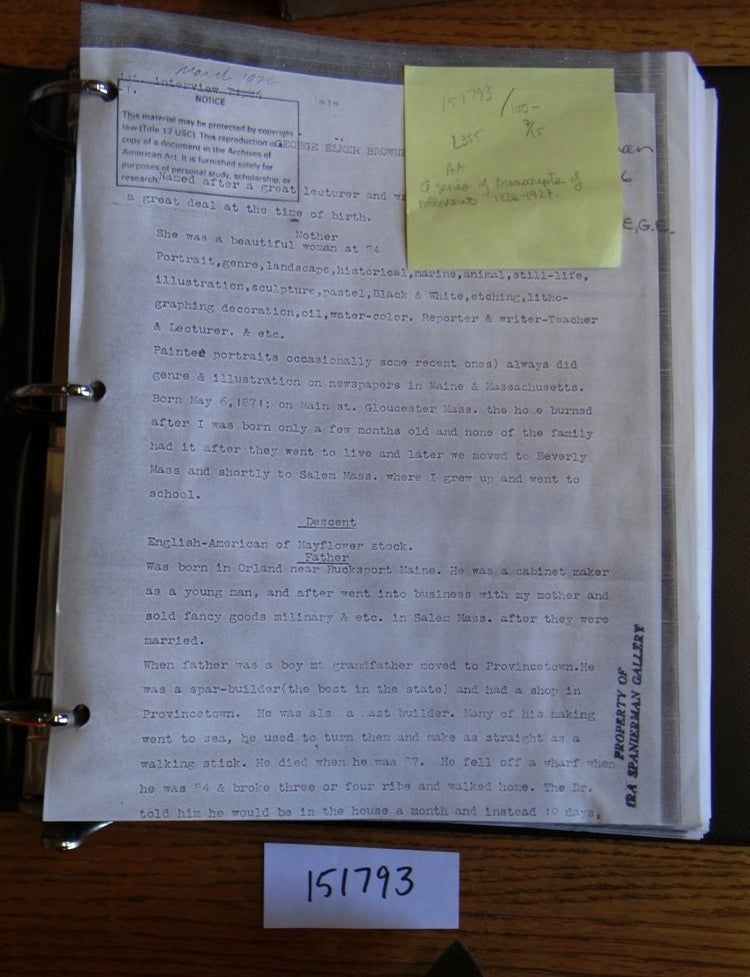 March 1926
1st. interview
1.
"1"
NOTICE
This material may be protected by copyright
law (Title 17 USC). This reproduction is a
copy of a document in the Archives of
American Art. It is furnished solely for
purposes of personal study, scholarship, or
research.
GEORGE ELMER BROWNE
Named after a great lecturer and
a great deal at the time of birth.
Mother
She was a beautiful woman at 24
Portrait,genre,landscape,historical,marine,animal,still-life,
illustration,sculpture,pastel,Black & White,etching,litho-
graphing decoration,oil,water-color. Reporter & writer-Teacher
& Lecturer. & etc.
Painted portraits occasionally some recent ones) always did
genre & illustration on newspapers in Maine & Massachusetts.
Born May 6,1871; on Main st. Gloucester Mass. the ho e burned
after I was born only a few months old and none of the family
had it after they went to live and later we moved to Beverly
Mass and shortly to Salem Mass. where I grew up and went to
school.
Descent
English-American of Mayflower stock.
Father
Was born in Orland near Bucksport Maine. He was a cabinet maker
as a young man, and after went into business with my mother and
sold fancy goods milinary & etc. in Salem Mass. after they were
married.
When father was a boy mt grandfather moved to Provincetown.He
was a spar-builder(the best in the state) and had a shop in
Provincetown. He was als a mast builder. Many of his making
went to sea, he used to turn them and make as straight as a
walking stick. He died when he was 87. He fell off a wharf when
he was 84 & broke three or four ribs and walked home. The Dr.
told him he would be in the house a month and instead 10 days,
151793 / 100-
L355 7/15
AA
a series of transcripts of
interviews 1926-1927
E,G.E.
PROPERTY OF
IRA SPANIERMAN GALLERY
151793